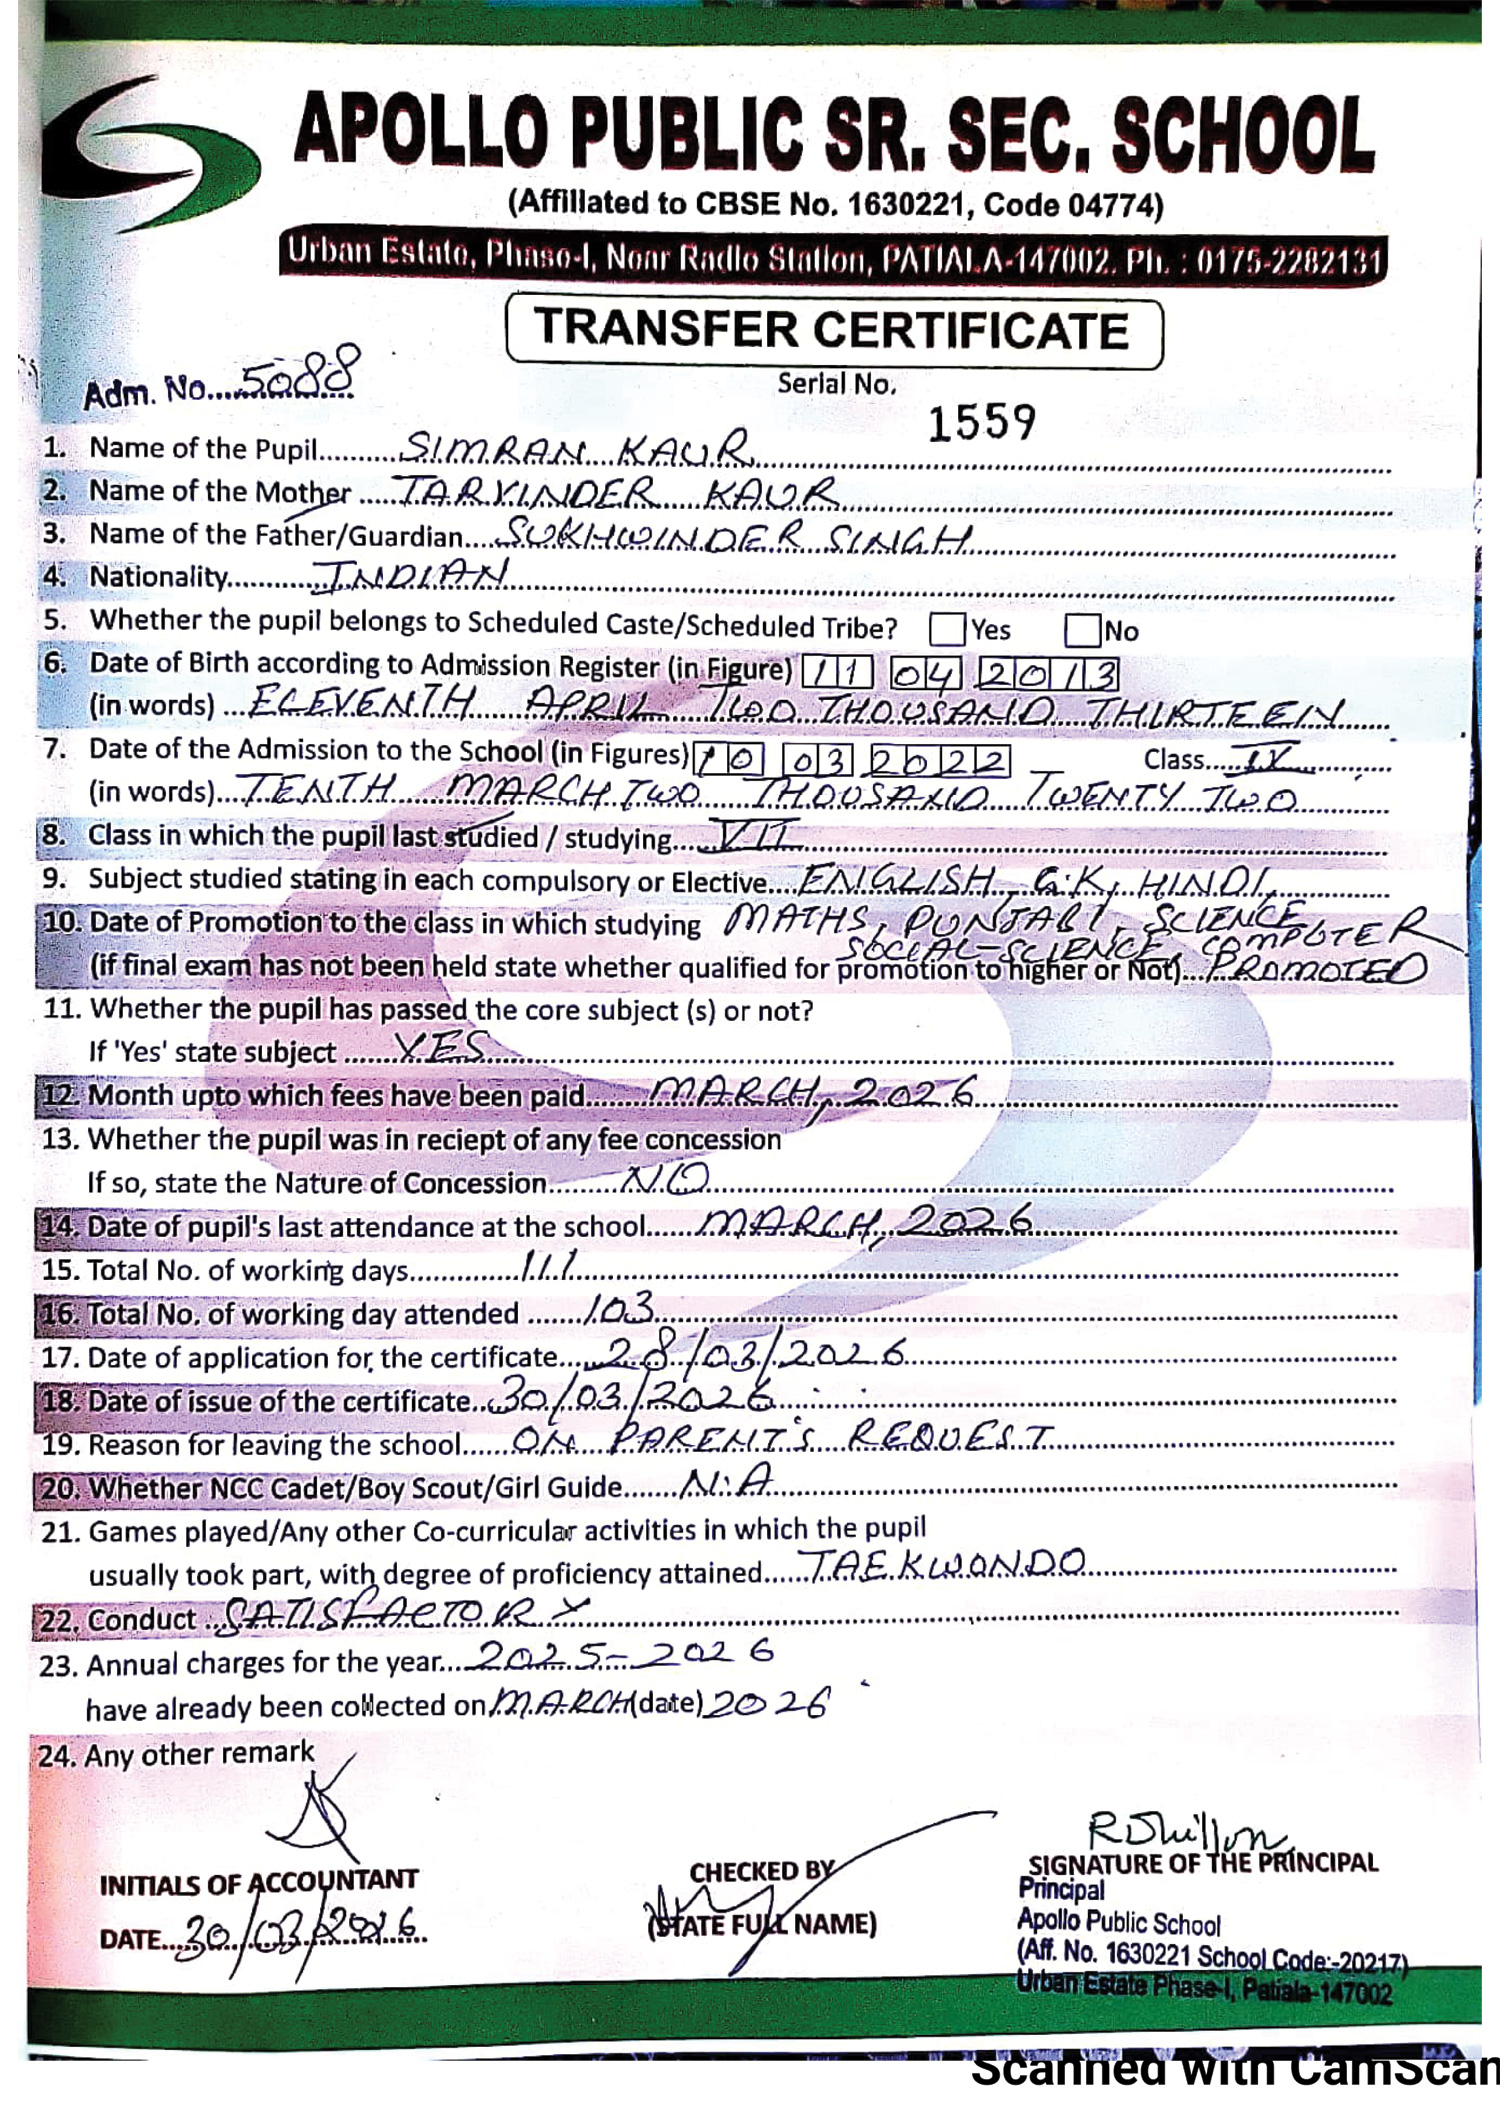 APOLLO PUBLIC SR. SEC. SCHOOL
(Affillated to CBSE No. 1630221, Code 04774)
Urban Estate, Phase-I, Near Radio Station, PATIALA-147002. Ph. : 0175-2282131
TRANSFER CERTIFICATE
Adm. No....5088 Serial No.
1559
1. Name of the Pupil..........SIMRAN KAUR
2. Name of the Mother .....TARVINDER KAUR
3. Name of the Father/Guardian....SUKHWINDER SINGH
4. Nationality............INDIAN
5. Whether the pupil belongs to Scheduled Caste/Scheduled Tribe? Yes No
6. Date of Birth according to Admission Register (in Figure) 11 04 2013
(in words) ...ELEVENTH APRIL TWO THOUSAND THIRTEEN
7. Date of the Admission to the School (in Figures) 10 03 2022 Class.....IV
(in words)...TENTH MARCH TWO THOUSAND TWENTY TWO
8. Class in which the pupil last studied / studying....VII
9. Subject studied stating in each compulsory or Elective....ENGLISH, G.K, HINDI,
10. Date of Promotion to the class in which studying MATHS, PUNJABI, SCIENCE
SOCIAL-SCIENCE, COMPUTER
(if final exam has not been held state whether qualified for promotion to higher or Not)....PROMOTED
11. Whether the pupil has passed the core subject (s) or not?
If 'Yes' state subject .......YES
12. Month upto which fees have been paid........MARCH, 2026
13. Whether the pupil was in reciept of any fee concession
If so, state the Nature of Concession.........NO
14. Date of pupil's last attendance at the school......MARCH, 2026
15. Total No. of working days..............111
16. Total No. of working day attended .......103
17. Date of application for the certificate.....28/03/2026
18. Date of issue of the certificate...30/03/2026
19. Reason for leaving the school......ON PARENT'S REQUEST
20. Whether NCC Cadet/Boy Scout/Girl Guide.......N.A
21. Games played/Any other Co-curricular activities in which the pupil
usually took part, with degree of proficiency attained......TAEKWONDO
22. Conduct ...SATISFACTORY
23. Annual charges for the year....2025-2026
have already been collected on MARCH (date) 2026
24. Any other remark
RDhillon
INITIALS OF ACCOUNTANT CHECKED BY SIGNATURE OF THE PRINCIPAL
Principal
DATE....30/03/2026 (STATE FULL NAME) Apollo Public School
(Aff. No. 1630221 School Code:-20217)
Urban Estate Phase-I, Patiala-147002
Scanned with CamScan